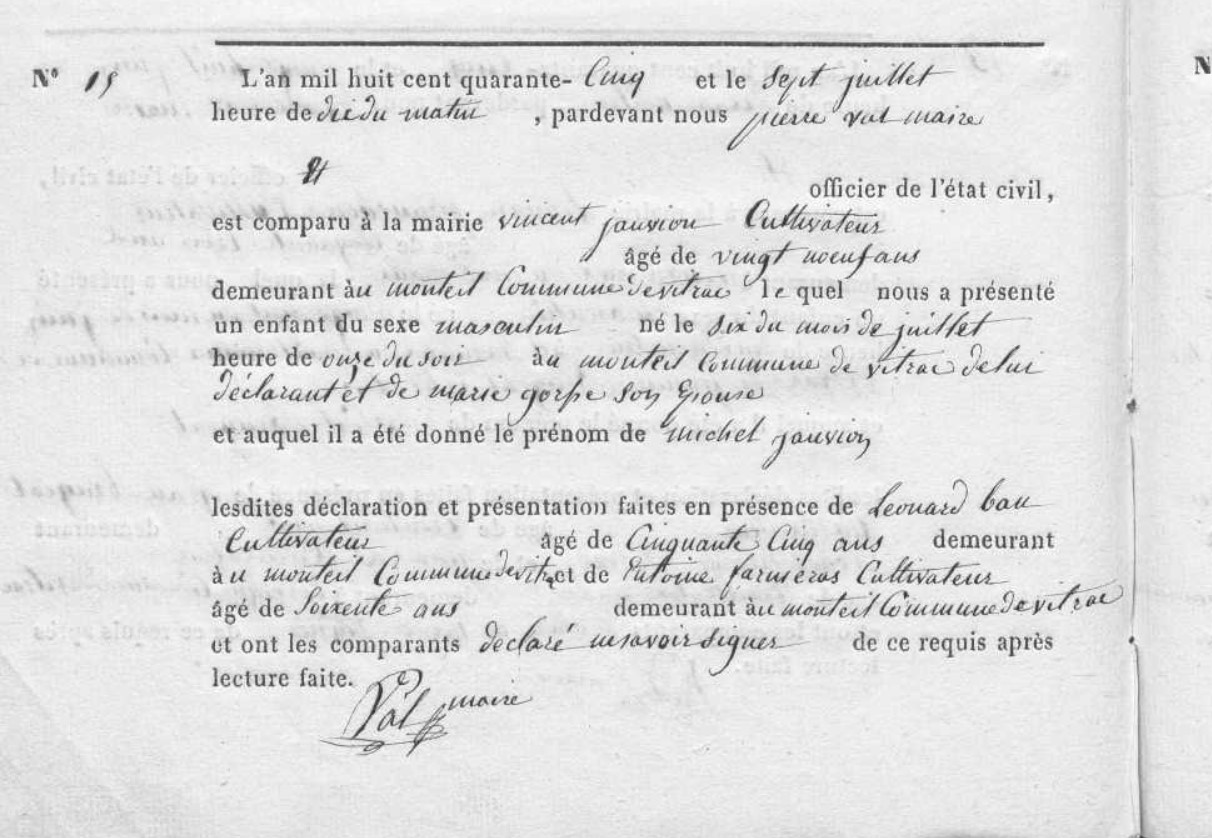 N° 15 L'an mil huit cent quarante- Cinq et le sept juillet
heure de dix du matin , pardevant nous pierre val maire
et officier de l'état civil,
est comparu à la mairie vincent jauvion Cultivateur
âgé de vingt noeuf ans
demeurant àu monteil Commune de vitrac le quel nous a présenté
un enfant du sexe masculin né le six du mois de juillet
heure de onze du soir àu monteil Commune de vitrac de lui
déclarant et de marie gorse son Epouse
et auquel il a été donné le prénom de michel jauvion
lesdites déclaration et présentation faites en présence de Leonard bau
Cultivateur âgé de Cinquante Cinq ans demeurant
àu monteil Commune de vitrac et de Entoine farnieras Cultivateur
âgé de Soixente ans demeurant àu monteil Commune de vitrac
et ont les comparants declaré ne savoir signer de ce requis après
lecture faite.
Val maire
N